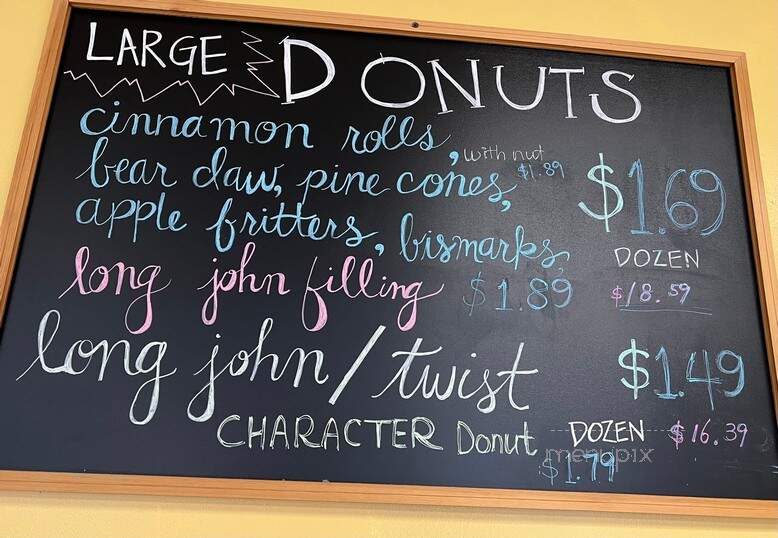 LARGE DONUTS
cinnamon rolls, with nut $1.89
bear claw, pine cones, $1.69
apple fritters, bismarks, DOZEN
long john filling $1.89 $18.59
long john/twist $1.49
CHARACTER Donut DOZEN $16.39
$1.79
menupix